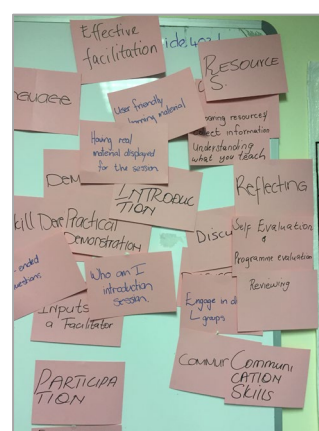 Effective
facilitation
ideas
RESOURCE
S.
User friendly
learning material
resources
information
Understanding
what you teach
Having real
material displayed
for the session.
DEM
INTRODUC
TION
Reflecting
Practical
Demonstration
Discu
Self Evaluation
&
Programme evaluation
Reviewing
-ended
Who am I
introduction
session.
Engage in di
L-groups
Inputs
a Facilitator
Commun
Communi
CATION
Skills
PARTICIPA
TION